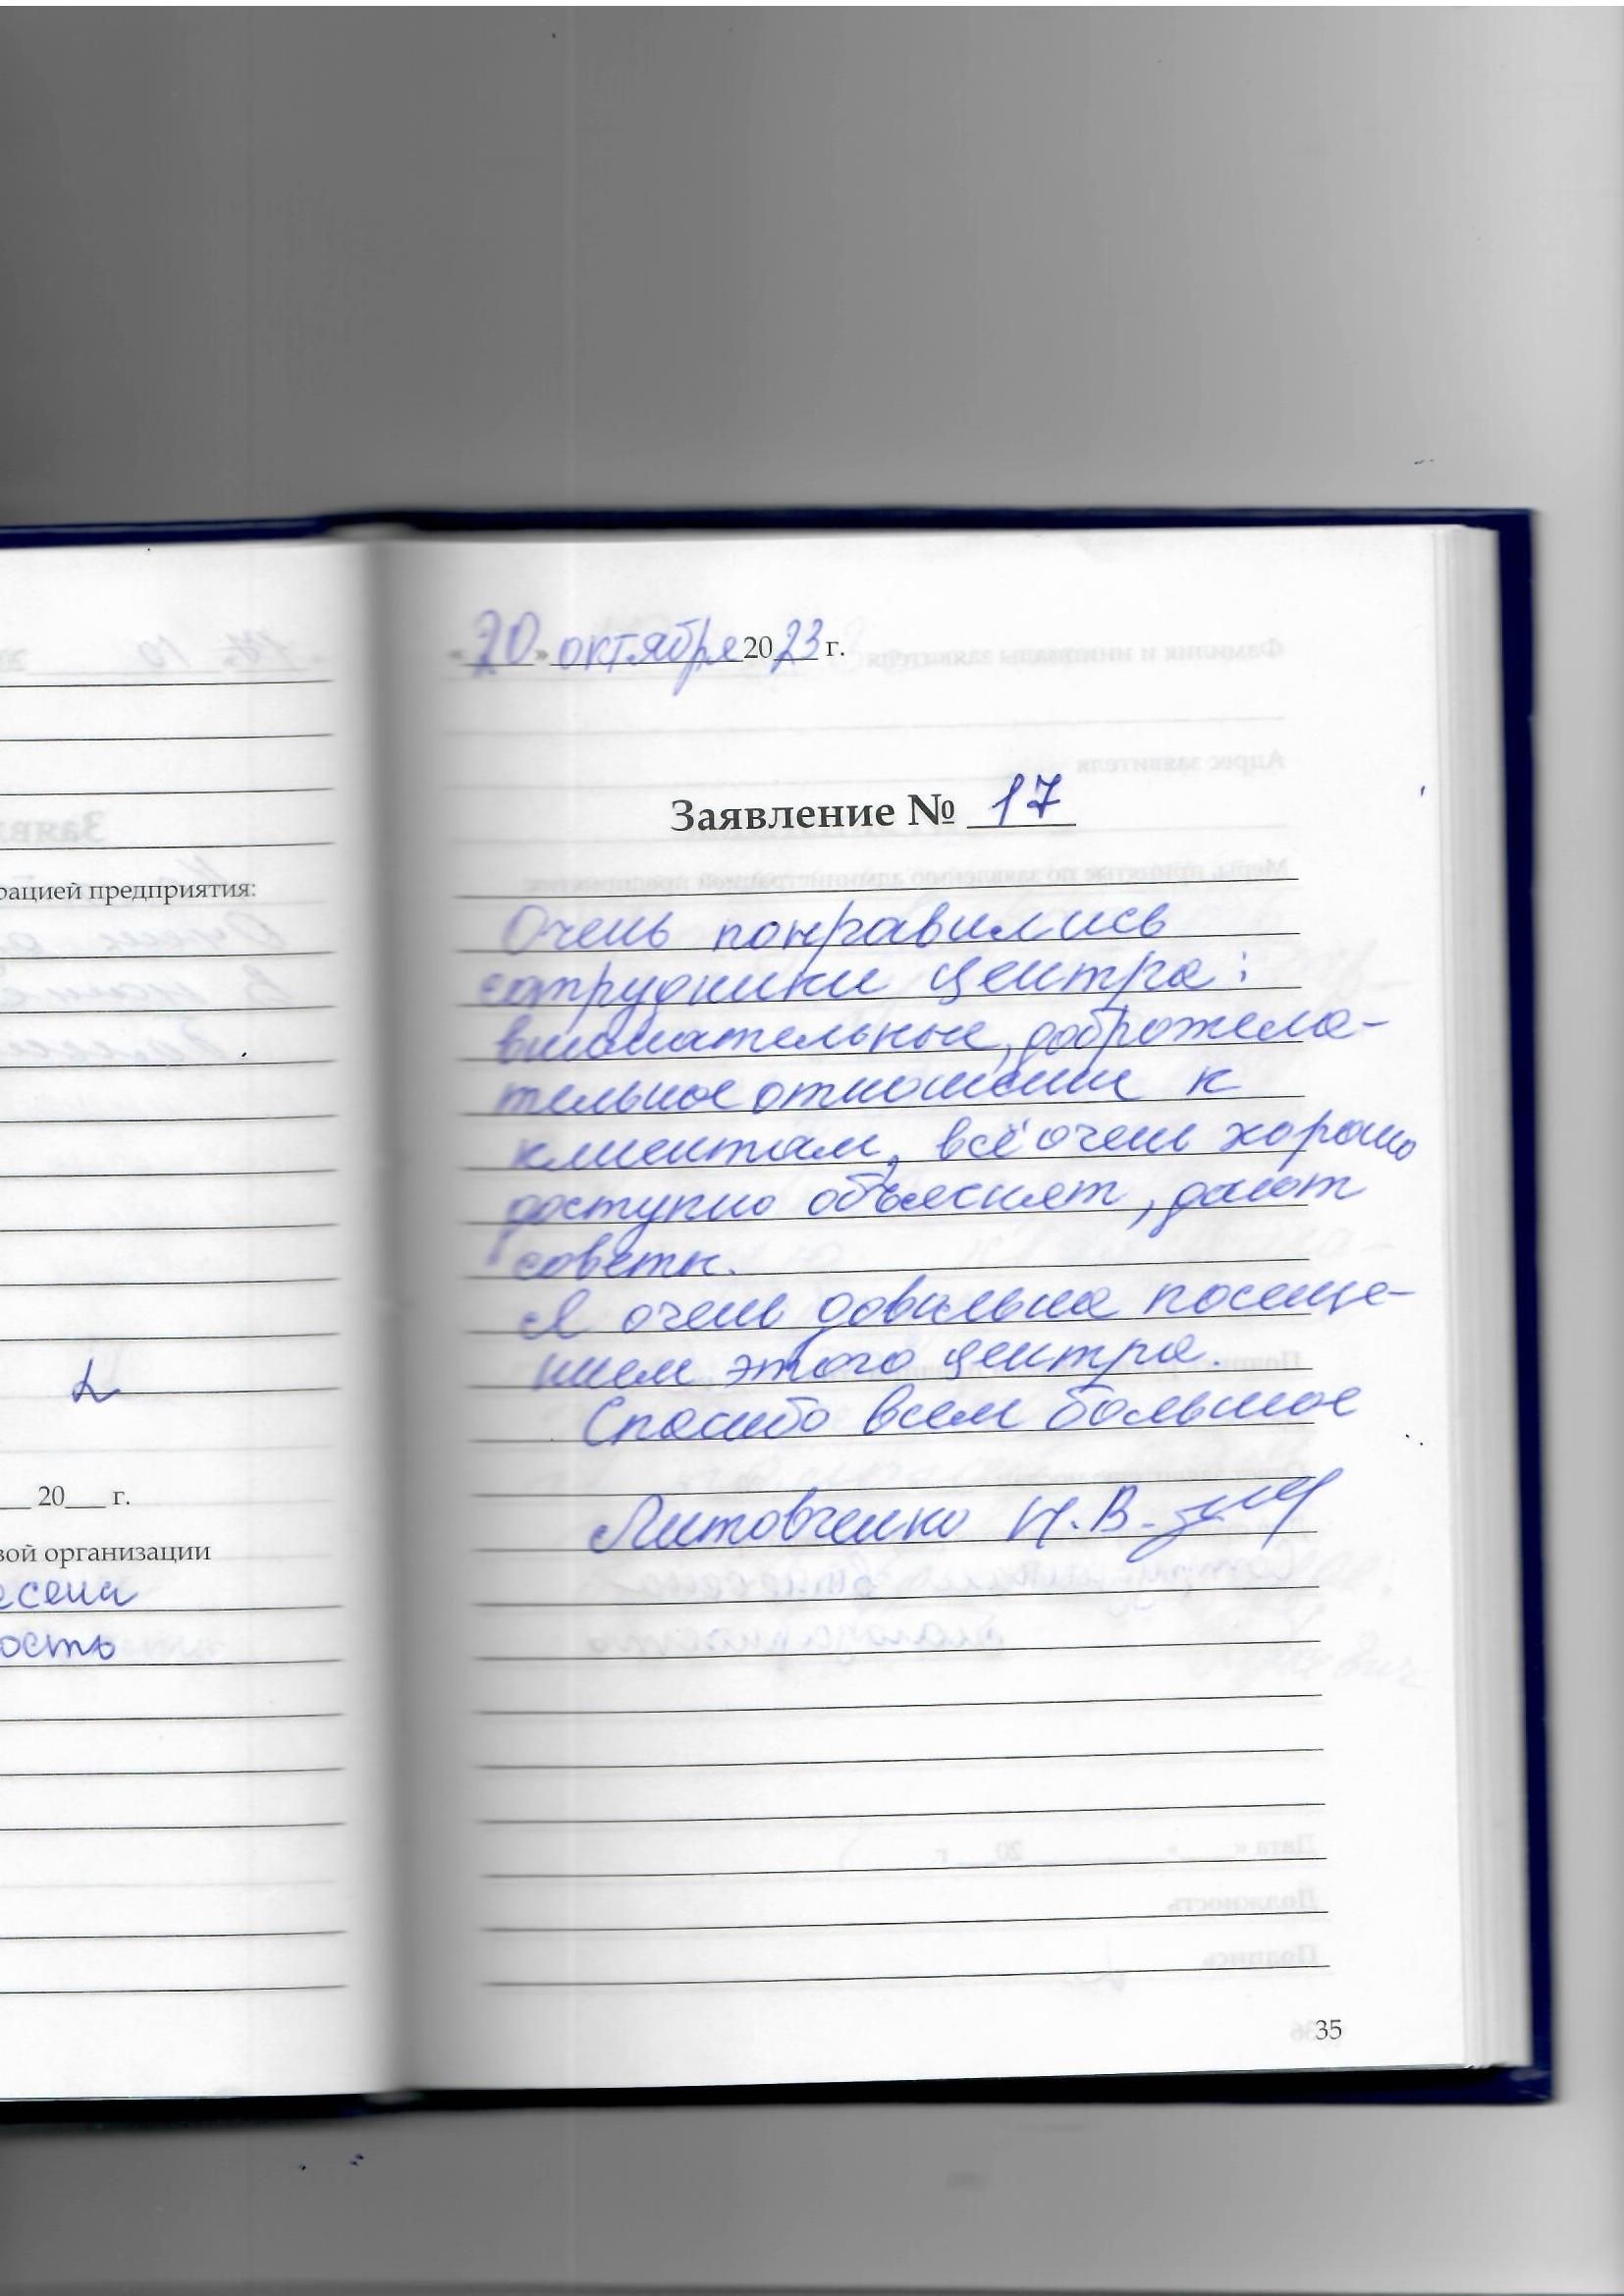 рацией предприятия:
20 г.
вой организации
есена
ость
«20» октября 2023 г.
Заявление № 17
Очень понравились
сотрудники центра:
внимательные, доброжела-
тельное отношение к
клиентам, всё очень хорошо
доступно объяснят, дают
советы.
Я очень довольна посеще-
нием этого центра.
Спасибо всем большое
Литовченко Н.В.
35